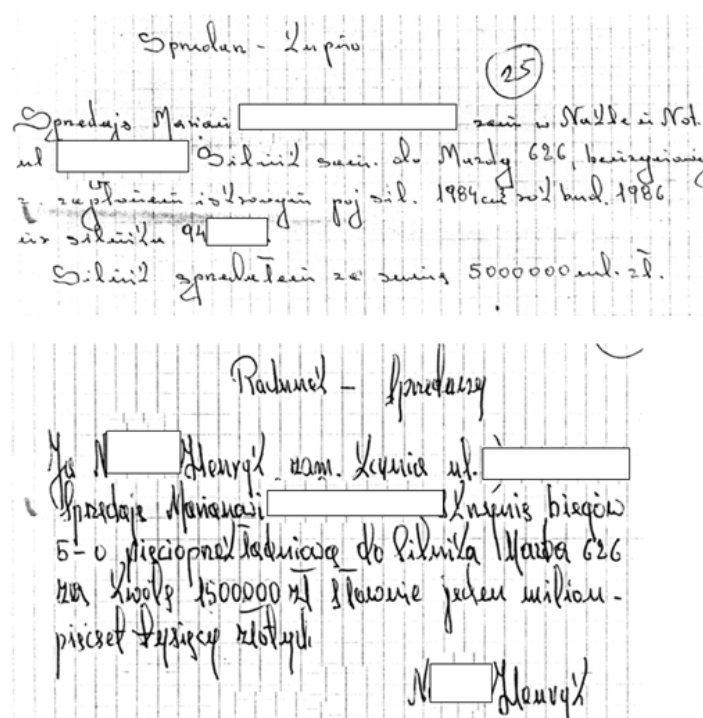 Sprzedaż - Kupno
25
Sprzedaję Marian zam w Nakle n Not.
ul Silnik sam. do Mazdy 626, benzynowy
z. zapłonem iskrowym poj sil. 1984 cm rok bud. 1986
nr silnika 94
Silnik sprzedałem za sumę 5000000 mil. zł.
Rachunek - Sprzedaży
Ja N Henryk zam. Kcynia ul.
Sprzedaję Marianowi Skrzynię biegów
5-o pięcioprzekładniową do Silnika Mazda 626
za kwotę 1500000 zł słownie jeden milion-
pięćset tysięcy złotych
N Henryk